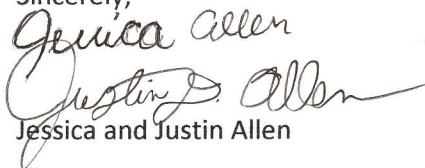 Sincerely,
Jessica Allen
Justin D. Allen
Jessica and Justin Allen